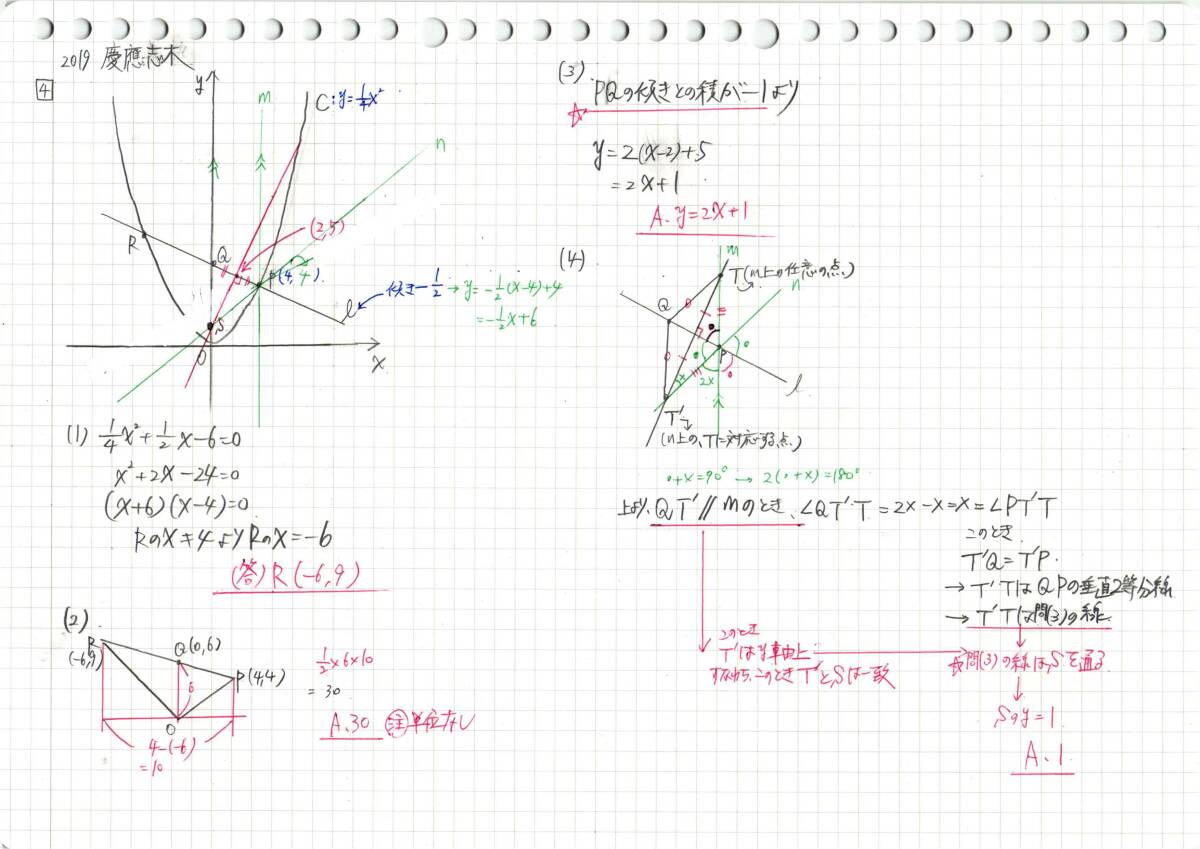 2019 慶應志木
4
y
m
C:y=1/4x²
n
R
Q
(2,5)
P(4,4)
傾き-1/2→y=-1/2(x-4)+4
=-1/2x+6
l
S
O
x
(1) 1/4x²+1/2x-6=0
x²+2x-24=0
(x+6)(x-4)=0
RのX≠4よりRのX=-6
(答)R(-6,9)
(2)
R
(-6,9)
Q(0,6)
P(4,4)
6
O
4-(-6)
=10
1/2×6×10
=30
A.30 注単位なし
(3)
PQの傾きとの積が-1より
y=2(x-2)+5
=2x+1
A. y=2x+1
(4)
m
T(m上の任意の点)
n
Q
P
2x
l
T'
(n上の、Tに対応する点)
。+x=90°→2(。+x)=180°
上より、QT'//mのとき、∠QT'T=2x-x=x=∠PT'T
このとき
T'Q=T'P
→T'TはQPの垂直2等分線
→T'Tは問(3)の線
このとき
T'はy軸上
すなわち、このときT'とSは一致
☆問(3)の線は、Sを通る
Sのy=1
A.1